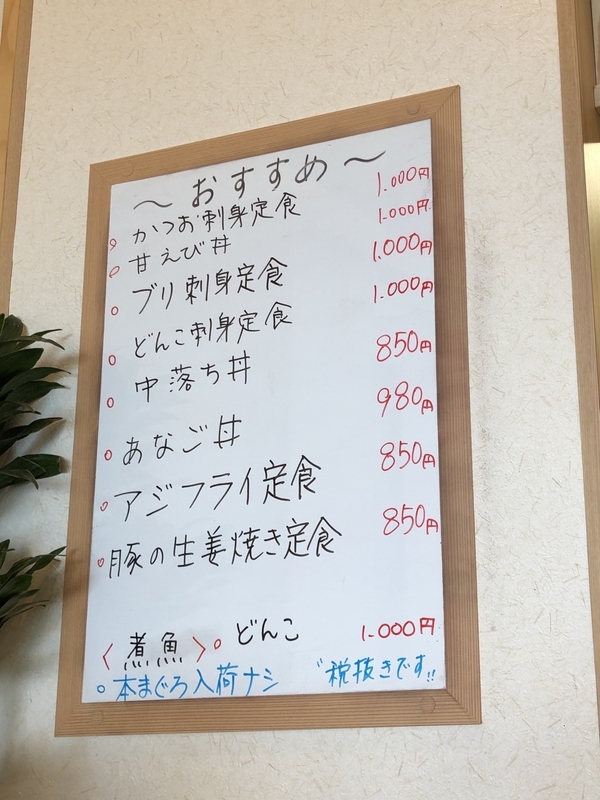 〜おすすめ〜
○かつお刺身定食 1.000円
○甘えび丼 1.000円
○ブリ刺身定食 1.000円
○どんこ刺身定食 1.000円
○中落ち丼 850円
○あなご丼 980円
○アジフライ定食 850円
○豚の生姜焼き定食 850円
〈煮魚〉○どんこ 1.000円
○本まぐろ入荷ナシ 税抜きです!!